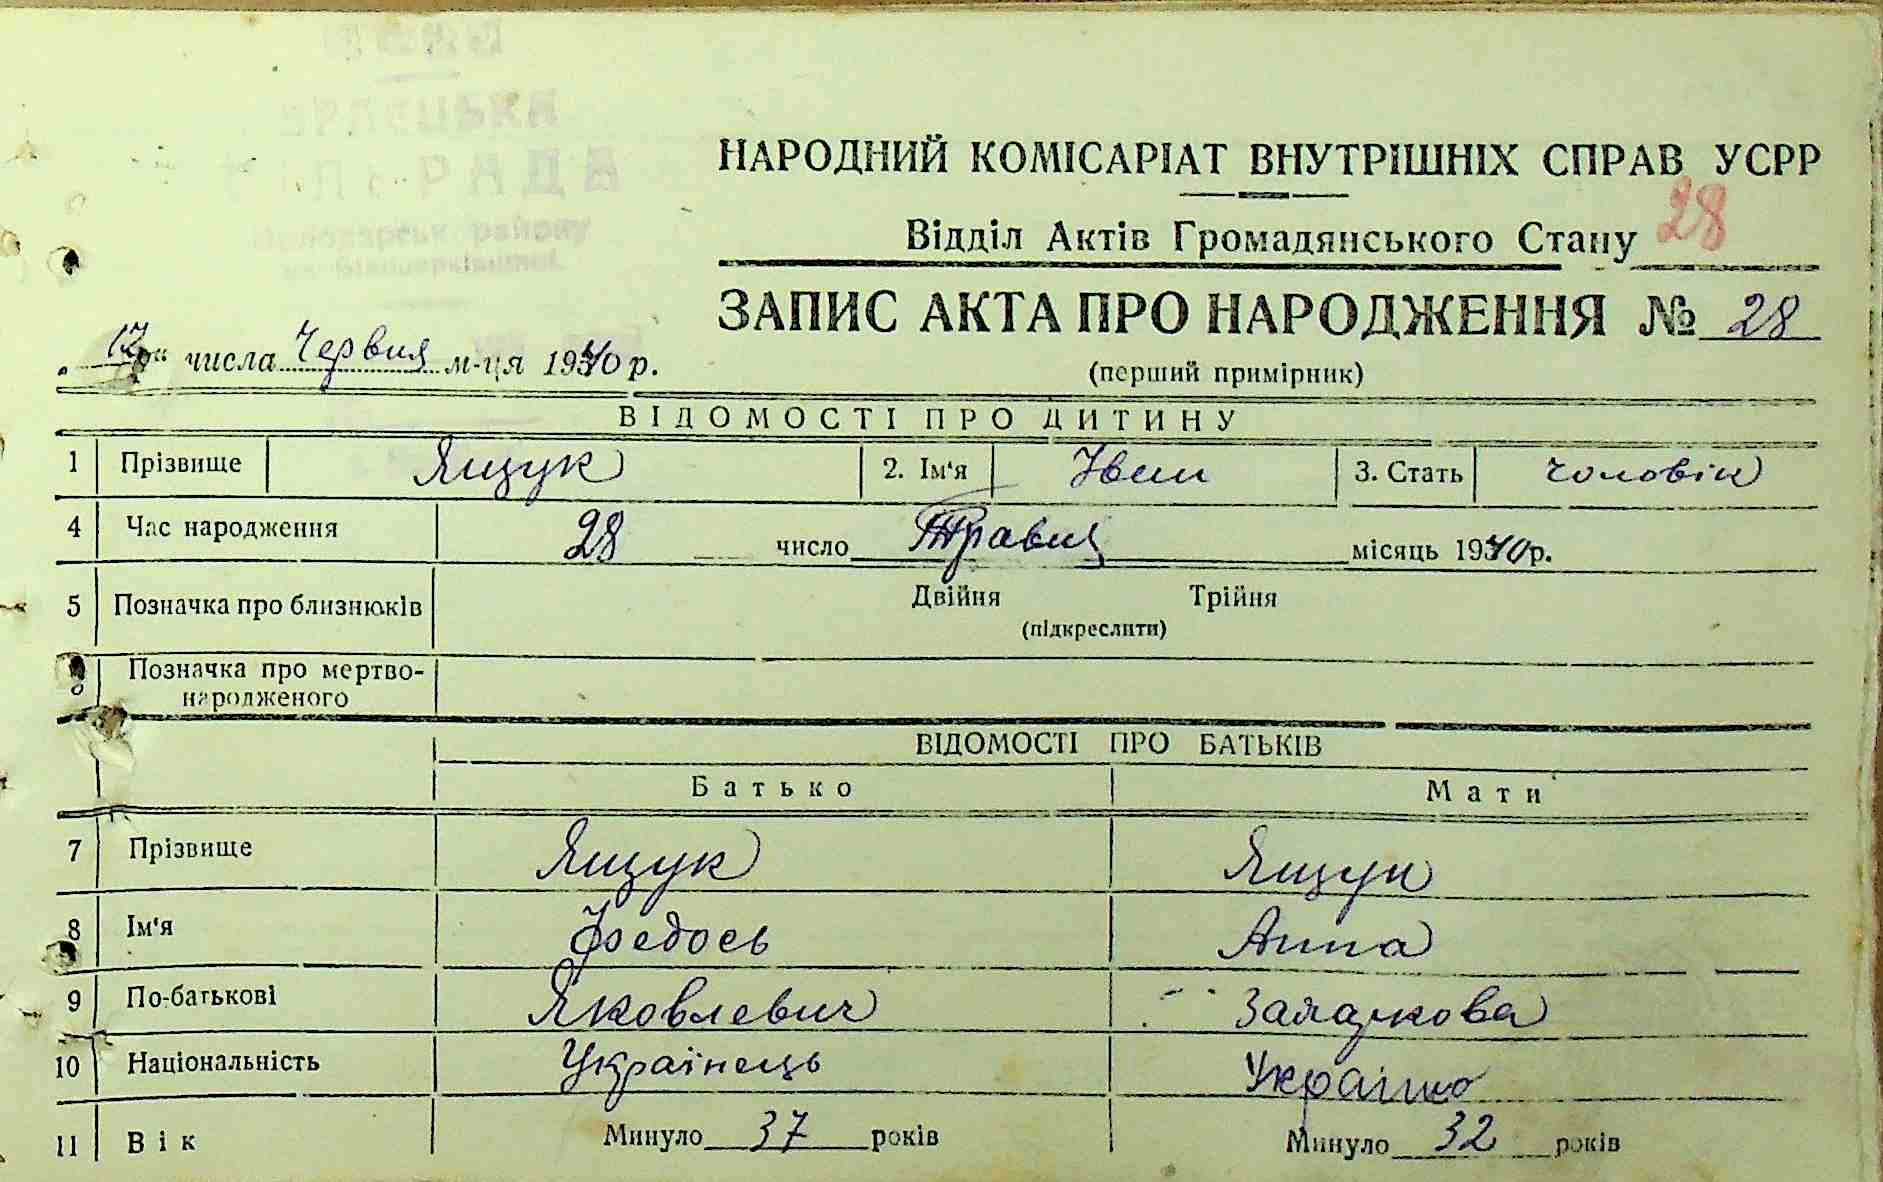 РАДА
району
НАРОДНИЙ КОМІСАРІАТ ВНУТРІШНІХ СПРАВ УСРР
Відділ Актів Громадянського Стану 28
ЗАПИС АКТА ПРО НАРОДЖЕННЯ № 28
числа Червня м-ця 1940 р.
(перший примірник)
ВІДОМОСТІ ПРО ДИТИНУ
1 Прізвище Ящук 2. Ім'я Іван 3. Стать чоловік
4 Час народження 28 число Травня місяць 1940 р.
5 Позначка про близнюків Двійня Трійня
(підкреслити)
Позначка про мертво-
народженого
ВІДОМОСТІ ПРО БАТЬКІВ
Батько Мати
7 Прізвище Ящук Ящук
8 Ім'я Федось Анна
9 По-батькові Яковлевич
10 Національність Українець Українка
11 Вік Минуло 37 років Минуло 32 років